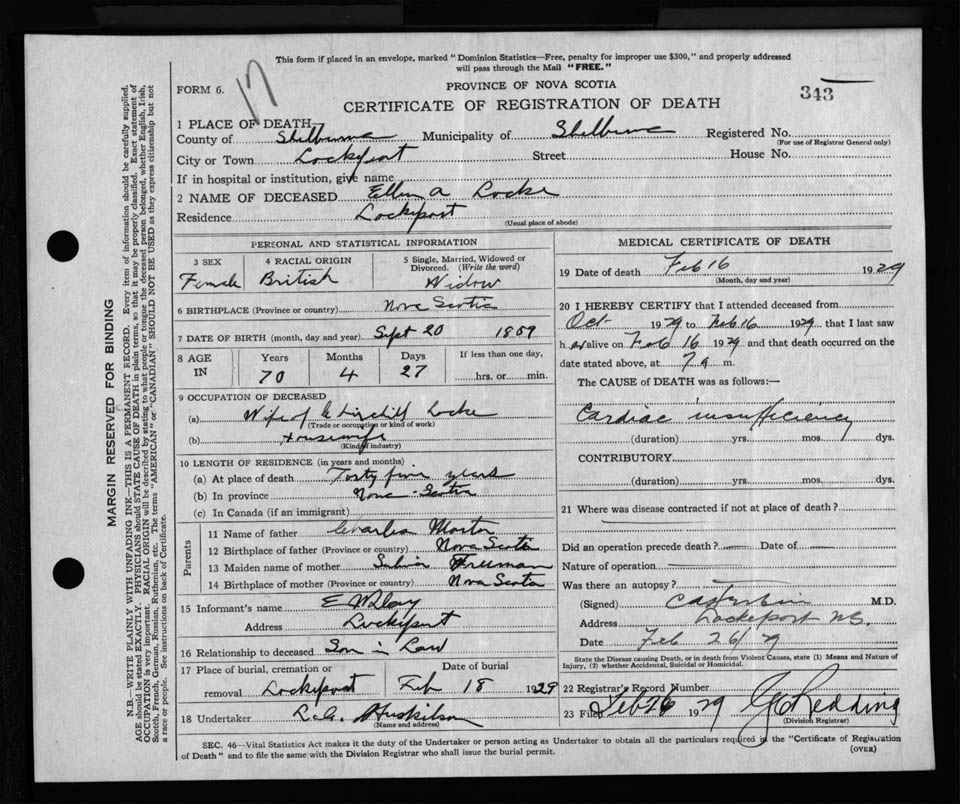 This form if placed in an envelope, marked "Dominion Statistics—Free, penalty for improper use $300," and properly addressed
will pass through the Mail "FREE."
17
FORM 6.
PROVINCE OF NOVA SCOTIA
343
CERTIFICATE OF REGISTRATION OF DEATH
1 PLACE OF DEATH—
County of Shelburne Municipality of Shelburne Registered No.
(For use of Registrar General only)
City or Town Lockeport Street House No.
If in hospital or institution, give name
2 NAME OF DECEASED Ellen A Locke
Residence Lockeport
(Usual place of abode)
PERSONAL AND STATISTICAL INFORMATION
3 SEX 4 RACIAL ORIGIN 5 Single, Married, Widowed or Divorced. (Write the word)
Female British Widow
6 BIRTHPLACE (Province or country) Nova Scotia
7 DATE OF BIRTH (month, day and year) Sept 20 1859
8 AGE IN Years Months Days If less than one day,
70 4 27 hrs. or min.
9 OCCUPATION OF DECEASED
(a) Wife of Churchill Locke
(Trade or occupation or kind of work)
(b) Housewife
(Kind of industry)
10 LENGTH OF RESIDENCE (in years and months)
(a) At place of death Forty five years
(b) In province Nova Scotia
(c) In Canada (if an immigrant)
Parents
11 Name of father Charles
12 Birthplace of father (Province or country) Nova Scotia
13 Maiden name of mother Freeman
14 Birthplace of mother (Province or country) Nova Scotia
15 Informant's name E
Address Lockeport
16 Relationship to deceased Son in Law
17 Place of burial, cremation or Date of burial
removal Lockeport Feb 18 1929
18 Undertaker R.A. Huskilson
(Name and address)
MEDICAL CERTIFICATE OF DEATH
19 Date of death Feb 16 1929
(Month, day and year)
20 I HEREBY CERTIFY that I attended deceased from
Oct 1929 to Feb 16 1929 that I last saw
her alive on Feb 16 1929 and that death occurred on the
date stated above, at 7 a m.
The CAUSE of DEATH was as follows:—
Cardiac insufficiency
(duration) yrs. mos. dys.
CONTRIBUTORY
(duration) yrs. mos. dys.
21 Where was disease contracted if not at place of death?
Did an operation precede death? Date of
Nature of operation
Was there an autopsy?
(Signed) M.D.
Address Lockeport N.S.
Date Feb 26/29
State the Disease causing Death, or in death from Violent Causes, state (1) Means and Nature of
Injury, (2) whether Accidental, Suicidal or Homicidal.
22 Registrar's Record Number
23 Filed Feb 26 1929 Redding
(Division Registrar)
SEC. 46—Vital Statistics Act makes it the duty of the Undertaker or person acting as Undertaker to obtain all the particulars required in the "Certificate of Registration
of Death" and to file the same with the Division Registrar who shall issue the burial permit.
(OVER)
MARGIN RESERVED FOR BINDING
N.B.—WRITE PLAINLY WITH UNFADING INK—THIS IS A PERMANENT RECORD. Every item of information should be carefully supplied.
AGE should be stated EXACTLY. PHYSICIANS should STATE CAUSE OF DEATH in plain terms, so that it may be properly classified. Exact statement of
OCCUPATION is very important. RACIAL ORIGIN will be described by stating to what people or tongue the deceased person belonged, whether English, Irish,
Scotch, French, German, Russian, Ruthenian, etc. The terms "AMERICAN" or "CANADIAN" SHOULD NOT BE USED as they express citizenship but not
a race or people. See instructions on back of Certificate.